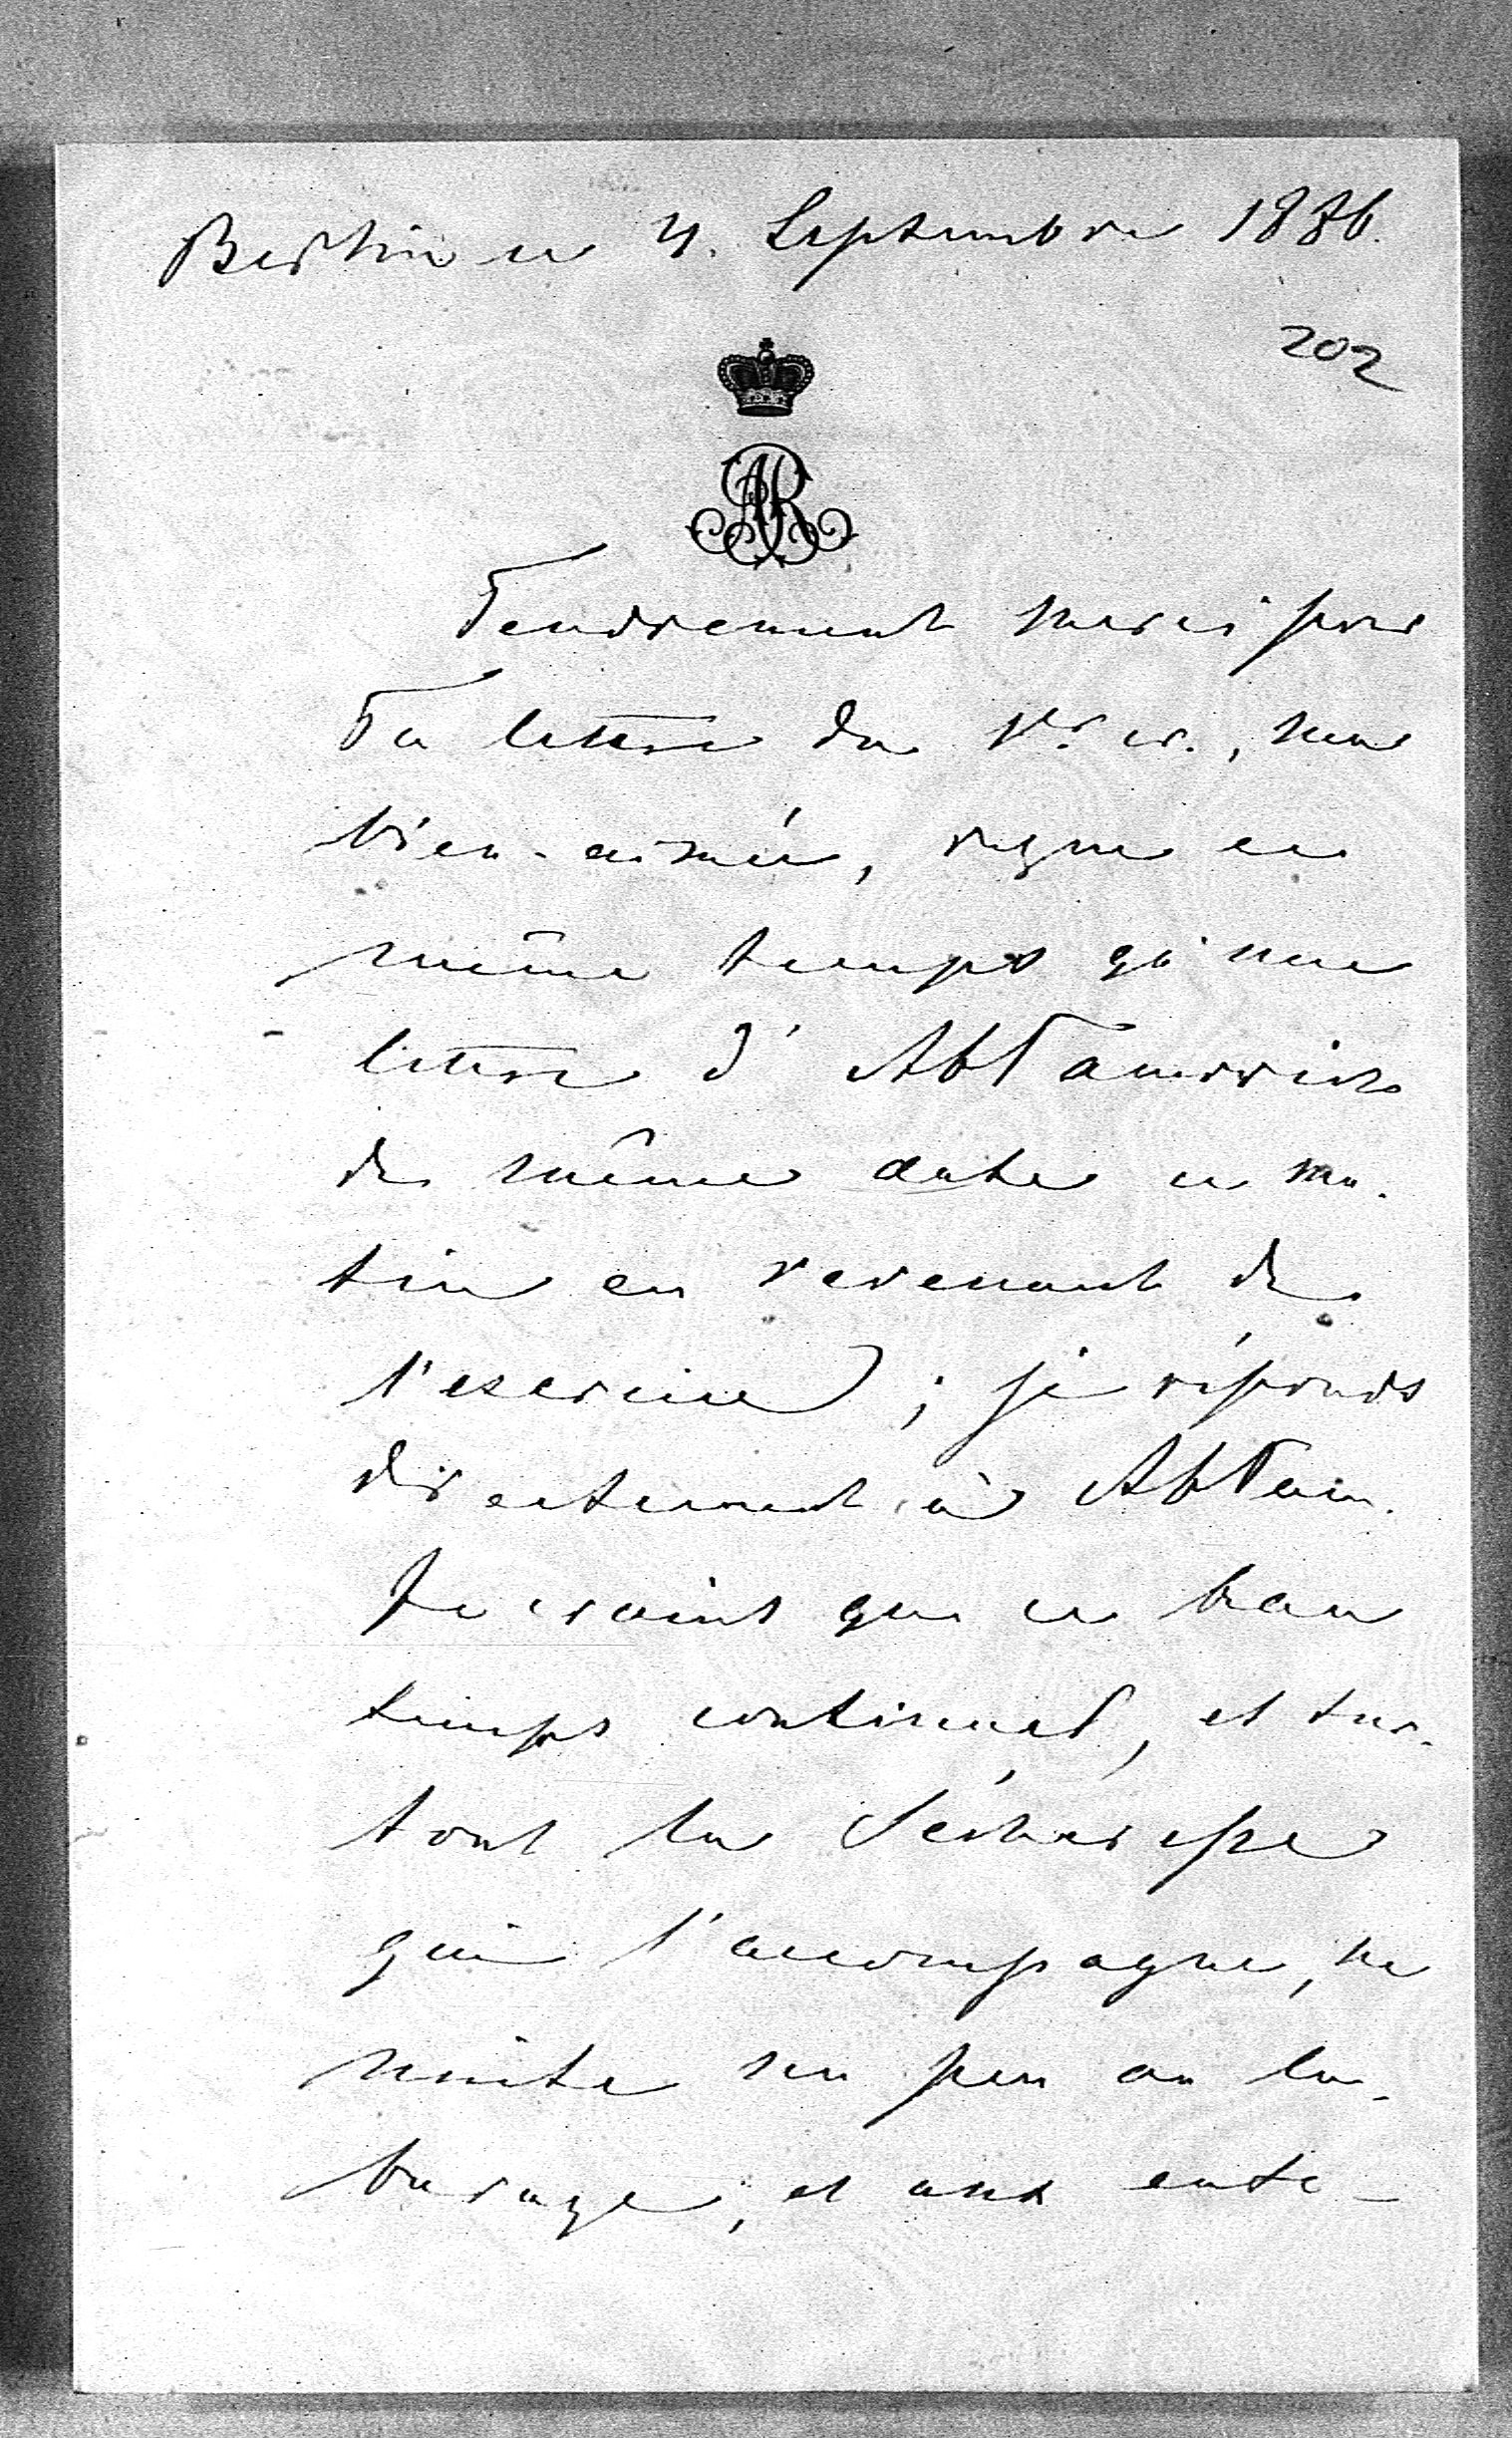 Berlin ce 4. Septembre 1886.
202
AR
Tendrement merci pour
Ta lettre du 1er cr., ma
bien-aimée, reçue en
même temps qu'une
lettre d'
de même date ce ma-
tin en revenant de
l'exercice; je réponds
directement à
Je crains que ce beau
temps continuel, et sur-
tout la sécheresse
qui l'accompagne, ne
nuite un peu au la-
bourage, et aux